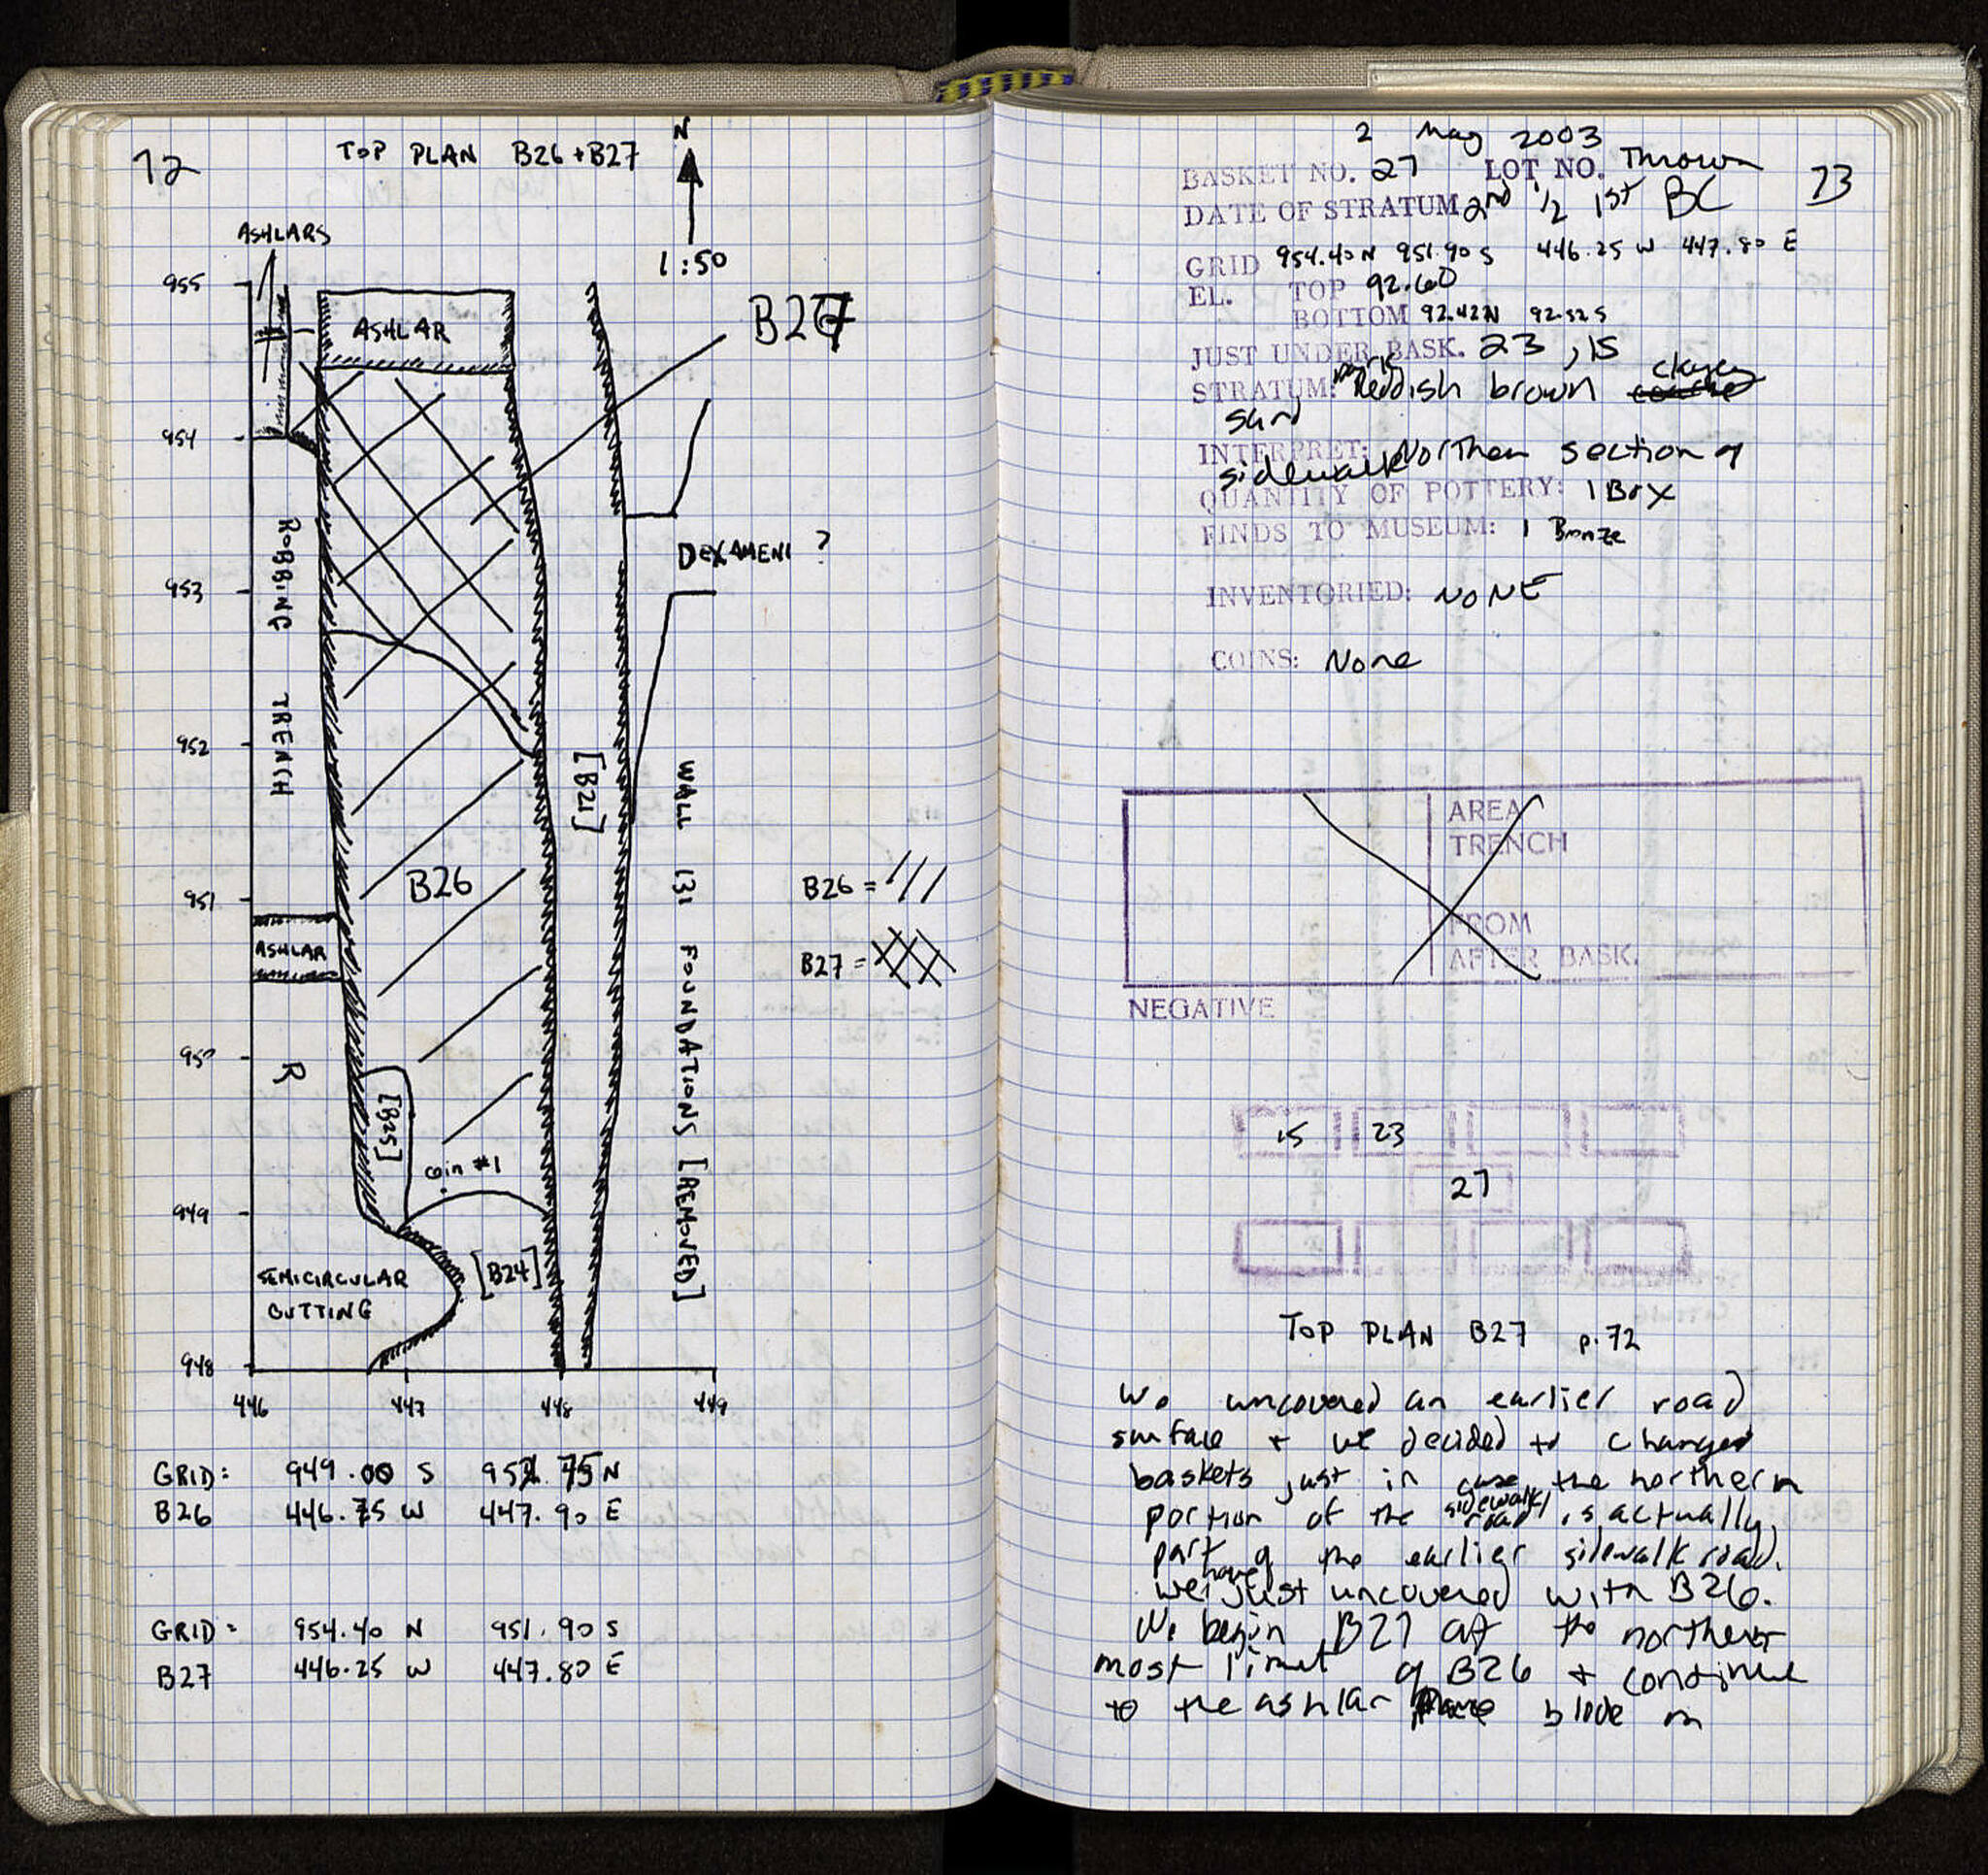 72
TOP PLAN B26+B27
N
1:50
ASHLARS
955
954
953
952
951
950
949
948
446 447 448 449
ASHLAR
B27
ROBBING TRENCH
DEXAMENI ?
[B21]
WALL 131 FOUNDATIONS [REMOVED]
B26
B26 = ///
B27 =
ASHLAR
R
[B25]
coin #1
[B24]
SEMICIRCULAR
CUTTING
GRID: 949.00 S 952.75 N
B26 446.75 W 447.90 E
GRID: 954.40 N 951.90 S
B27 446.25 W 447.80 E
2 May 2003
73
BASKET NO. 27 LOT NO. Thrown
DATE OF STRATUM 2nd 1/2 1st BC
GRID 954.40 N 951.90 S 446.25 W 447.80 E
EL. TOP 92.60
BOTTOM 92.42N 92.52S
JUST UNDER BASK. 23, 15
STRATUM: Dark Reddish brown clayey
sand
INTERPRET: Northern section of
sidewalk
QUANTITY OF POTTERY: 1 Box
FINDS TO MUSEUM: 1 Bronze
INVENTORIED: NONE
COINS: None
AREA
TRENCH
FROM
AFTER BASK.
NEGATIVE
15 23
27
TOP PLAN B27 p.72
We uncovered an earlier road
surface + we decided to changed
baskets just in case the northern
portion of the sidewalk/road is actually
part of the earlier sidewalk road.
we have just uncovered with B26.
We begin B27 at the northern
most limit of B26 + continue
to the ashlar block in